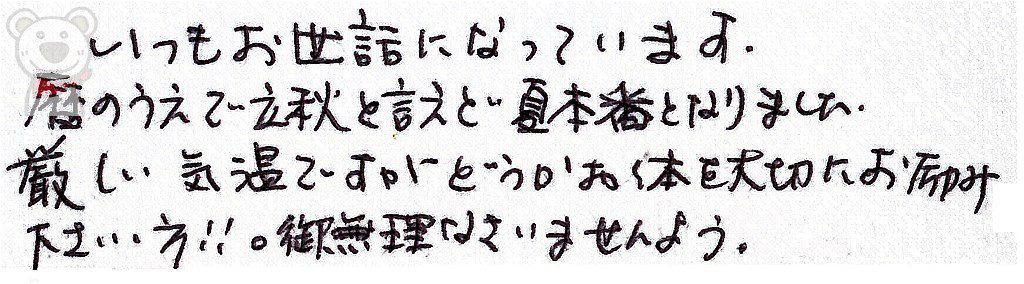 いつもお世話になっています.
暦のうえで立秋と言えど夏本番となりました.
厳しい気温ですがどうかお体を大切にお励み
下さい!!。御無理なさいませんよう。